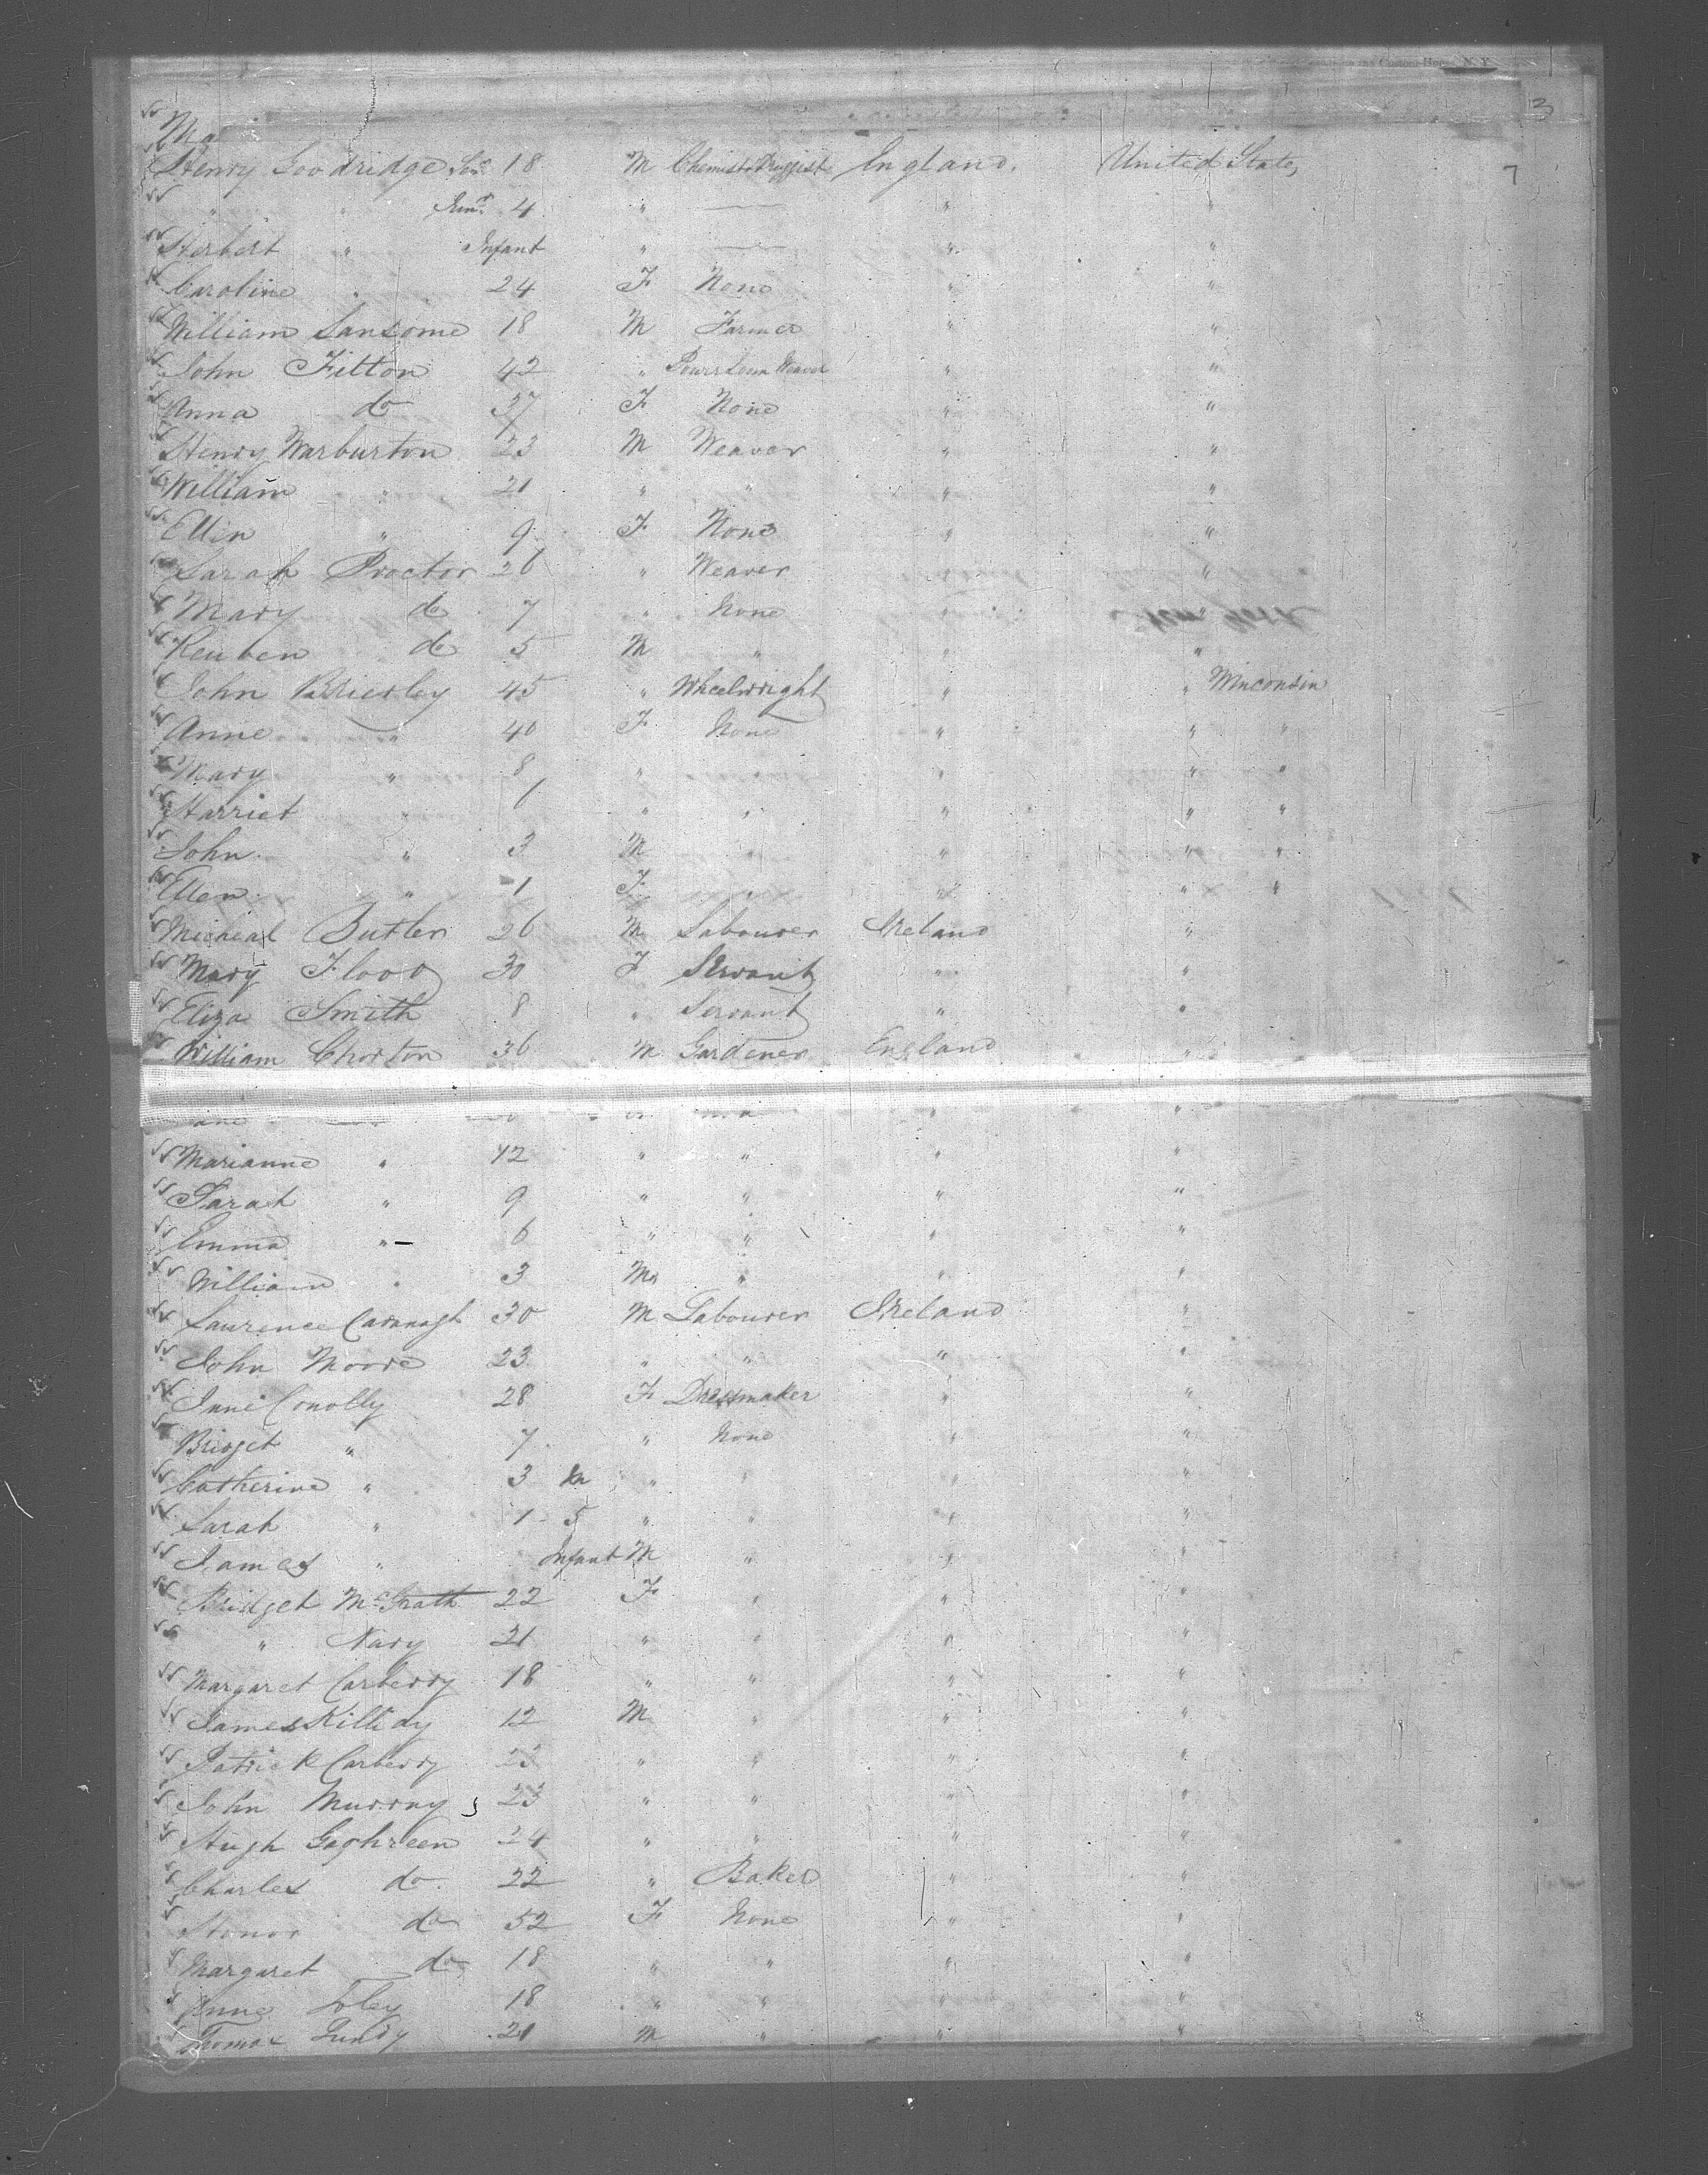 Custom-House N.Y.
3
Ma
Henry Goodridge Senr 18 M Chemist & Druggist England. United States 7
" " Junr 4 " — " "
Herbert " Infant " — " "
Caroline " 24 F None " "
William Sansome 18 M Farmer " "
John Fitton 42 " Power Loom Weaver " "
Anna do 37 F None " "
Henry Warburton 23 M Weaver " "
William " 21 " " " "
Ellen " 9 F None " "
Sarah Proctor 26 " Weaver " "
Mary do 7 " None " "
Reuben do 5 M " " "
John Brierley 45 " Wheelwright " " Winconsin
Anne " 40 F None " " "
Mary " 8 " " " " "
Harriet " 6 " " " " "
John " 3 M " " " "
Ellen " 1 F " " " "
Micheal Butler 26 M Labourer Ireland "
Mary Flood 30 F Servant " "
Eliza Smith 8 " Servant " "
William Chorton 36 M Gardener England "
Marianne " 12 " " " "
Sarah " 9 " " " "
Emma " 6 " " " "
William " 3 M " " "
Laurence Cavanagh 30 M Labourer Ireland "
John Moore 23 " " " "
Anne Conolly 28 F Dressmaker " "
Bridget " 7 " None " "
Catherine " 3 M " " " "
Sarah " 1 5 " " " "
James " Infant M " " "
Bridget McGrath 22 F " " "
" Nary 21 " " " "
Margaret Carberry 18 " " " "
James Killidy 12 M " " "
Patrick Carberry 23 " " " "
John Murray 23 " " " "
Hugh Goghreen 24 " " " "
Charles do 22 " Baker " "
Honor do 52 F None " "
Margaret do 18 " " " "
Anne Foley 18 " " " "
Thomas Lundy 21 M " " "